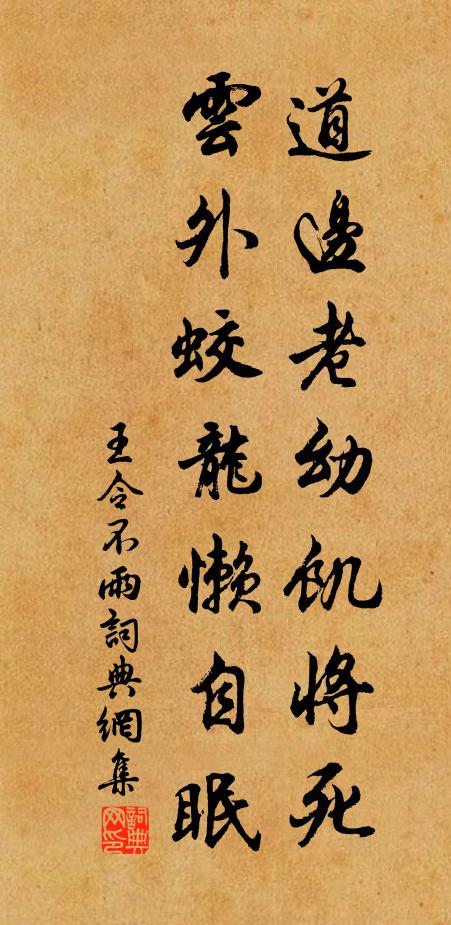 道邊老幼飢將死
雲外蛟龍懶自眠
王令不雨詞典網集
詞典网印